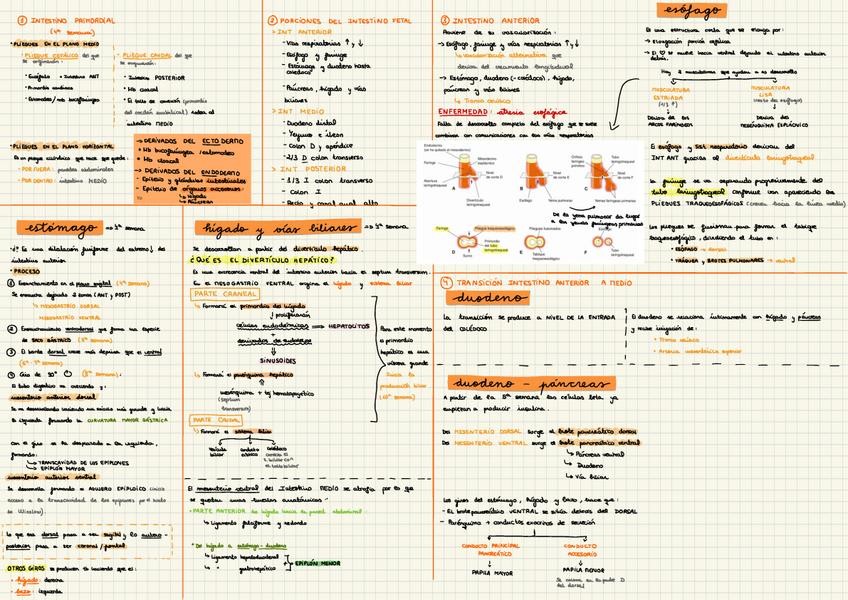 ① INTESTINO PRIMORDIAL
(4ª semana)
• PLIEGUES EN EL PLANO MEDIO
• PLIEGUE CEFÁLICO del que
se originarán:
• Esófago • Intestino ANT
• Primordio cardíaco
• Estomodeo / mb bucofaríngea
• PLIEGUE CAUDAL del que
se originarán:
• Intestino POSTERIOR
• Mb cloacal
intestino MEDIO
• PLIEGUES EN EL PLANO HORIZONTAL
• POR FUERA: paredes abdominales
• POR DENTRO: intestino MEDIO
→ DERIVADOS DEL ECTODERMO
• Mb bucofaríngea / estomodeo
• Mb cloacal
→ DERIVADOS DEL ENDODERMO
• Epitelio y glándulas intestinales
• Epitelio de órganos accesorios:
Hígado
Páncreas
② PORCIONES DEL INTESTINO FETAL
> INT ANTERIOR
- Vías respiratorias ↑ y ↓
- Esófago y faringe
- Estómago y duodeno hasta
colédoco
- Páncreas, hígado y vías
biliares
> INT MEDIO
- Duodeno distal
- Yeyuno e íleon
- Colon D y apéndice
- 2/3 D colon transverso
> INT POSTERIOR
- 1/3 I colon transverso
- Colon I
- Recto y canal anal alto
③ INTESTINO ANTERIOR
Proviene de su vascularización:
→ Esófago, faringe y vías respiratorias ↑ y ↓
↳ vascularización alternativa que
deriva del crecimiento longitudinal
→ Estómago, duodeno (→colédoco), hígado,
páncreas y vías biliares
↳ Tronco celíaco
ENFERMEDAD: atresia esofágica
Falta de desarrollo completo del esófago que se suele
combinar con comunicaciones con las vías respiratorias
esófago
Es una estructura corta que se alarga por:
→ Elongación porción cefálica
Hay 2 musculaturas que ayudan a su desarrollo
MUSCULATURA
ESTRIADA
MUSCULATURA
LISA
DERIVA DE LOS
ARCOS FARÍNGEOS
DERIVA DEL
MESÉNQUIMA ESPLÁCNICO
El esófago y sist respiratorio derivan del
INT ANT gracias al divertículo laringotraqueal
La faringe se va separando progresivamente del
tubo laringotraqueal conforme van apareciendo los
PLIEGUES TRAQUEOESOFÁGICOS (crecen hacia la línea media)
Los pliegues se fusionan para formar el tabique
traqueoesofágico, dividiendo el tubo en:
• ESÓFAGO → dorsal
• TRÁQUEA Y BROTES PULMONARES → ventral
Faringe
Nivel de corte D
Divertículo laringotraqueal
A
Esófago
Nivel de corte E
B
Yema pulmonar
C
De la yema pulmonar da lugar
a las yemas pulmonares primarias
Faringe
Pliegue traqueoesofágico
D
Surco
E
Tabique traqueoesofágico
Esófago
F
Tubo laringotraqueal
estómago
→ 4ª semana
intestino anterior
• PROCESO
① Ensanchamiento en el plano sagital (4ª semana)
Se encuentra dejando 2 zonas (ANT y POST)
↳ MESOGASTRIO DORSAL
MESOGASTRIO VENTRAL
② Ensanchamiento ventrodorsal que forma una especie
de SACO GÁSTRICO (5ª semana)
③ El borde dorsal crece más deprisa que el ventral
④ Giro de 90° (8ª semana):
mesenterio anterior dorsal
la izquierda formando la CURVATURA MAYOR GÁSTRICA
Con el giro se ha desplazado a la izquierda,
formando:
↳ TRANSCAVIDAD DE LOS EPIPLONES
↳ EPIPLÓN MAYOR
mesenterio anterior ventral
Se desarrolla formando el AGUJERO EPIPLOICO (único
acceso a la transcavidad de los epiplones por el hiato
de Winslow).
Lo que era dorsal pasa a ser sagital y lo antero-
posterior pasa a ser coronal/frontal
OTROS GIROS se producen lo haciendo que el:
• hígado: derecha
• bazo: izquierda
hígado y vías biliares
→ 4ª semana
Se desarrollan a partir del divertículo hepático.
¿QUÉ ES EL DIVERTÍCULO HEPÁTICO?
Es una excrecencia ventral del intestino anterior hacia el septum transversum.
En el MESOGASTRIO VENTRAL origina el hígado y el sistema biliar
PARTE CRANEAL
↳ Formará el primordio del hígado
↓ proliferarán
células endodérmicas ⟹ HEPATOCITOS
+
SINUSOIDES
↳ Formará el parénquima hepático
mesénquima + tej hematopoyético
(septum
transversum)
Para este momento
el primordio
hepático es una
víscera grande
Inicia la
producción biliar
PARTE CAUDAL
↳ Formará el sistema biliar
vesícula
biliar
conducto
cístico
colédoco
El mesenterio ventral del INTESTINO MEDIO se atrofia por lo que
• PARTE ANTERIOR de hígado hacia la pared abdominal:
↳ Ligamento falciforme y redondo
• De hígado a estómago-duodeno
↳ Ligamento hepatoduodenal
↳ " gastrohepático
EPIPLÓN MENOR
④ TRANSICIÓN INTESTINO ANTERIOR A MEDIO
duodeno
La transición se produce a NIVEL DE LA ENTRADA
del COLÉDOCO
El duodeno se relaciona íntimamente con hígado y páncreas
y recibe irrigación de:
• Tronco celíaco
• Arteria mesentérica superior
duodeno - páncreas
A partir de la 8ª semana las células beta ya
empiezan a producir insulina.
Del MESENTERIO DORSAL surge el brote pancreático dorsal
Del MESENTERIO VENTRAL surge el brote pancreático ventral
↳ Páncreas ventral
↳ Duodeno
↳ Vía biliar
Los giros del estómago, hígado y bazo, hace que:
- El brote pancreático VENTRAL se sitúa detrás del DORSAL
- Parénquima + conductos excretores de secreción
CONDUCTO PRINCIPAL
PANCREÁTICO
PAPILA MAYOR
CONDUCTO
ACCESORIO
PAPILA MENOR